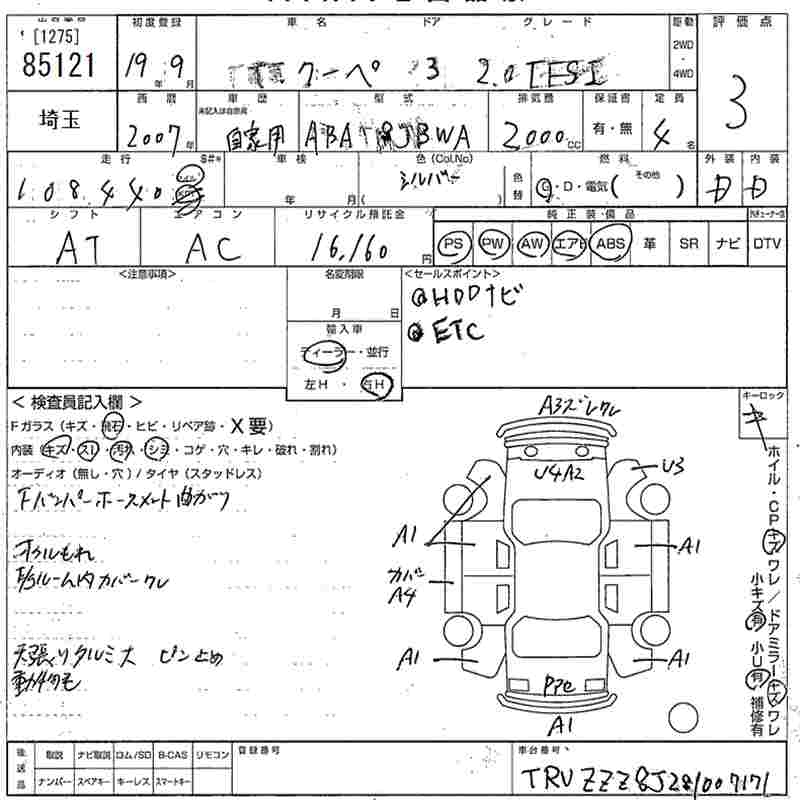 [1275]
85121
埼玉
初度登録
19年 9月
車名 ドア グレード
クーペ 3 2.0TFSI
駆動
2WD
・
4WD
評価点
3
西暦
2007年
車歴
未記入は自家用
自家用
型式
ABA T8JBWA
排気量
2000cc
保証書
有・無
定員
4名
走行
108440
S#*
車検
年 月
色(Col,No)
シルバー
( )
色替
燃料
G・D・電気( その他 )
外装
D
内装
D
シフト
AT
エアコン
AC
リサイクル預託金
16,160円
純正装備品
PS PW AW エアB ABS 革 SR ナビ DTV
<注意事項>
名変期限
月 日
輸入車
ディーラー・並行
左H・右H
<セールスポイント>
HDDナビ
ETC
< 検査員記入欄 >
Fガラス (キズ・飛石・ヒビ・リペア跡・X要)
内装 (キズ・スレ・汚れ・シミ・コゲ・穴・キレ・破れ・割れ)
オーディオ (無し・穴) / タイヤ (スタッドレス)
Fバンパーホースメント曲がり
オイルもれ
E/Gルーム内カバーワレ
天張りタルミ大 ピン止め
動物毛
A3ズレワレ
U4A2
U3
A1
A1
カバー
A4
A1
A1
A1
キーロック
キ
ホイル・CP キズ ワレ / ドアミラー キズ ワレ
小キズ 有 小U 有 補修有
後送品
取説 ナビ取説 ロム/SD B-CAS リモコン
ナンバー スペアキー キーレス スマートキー
登録番号
車台番号
TRUZZZ8J281007171